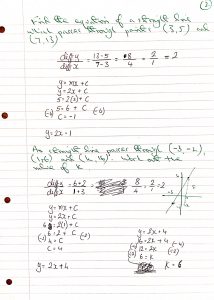 (2)
Find the equation of a straight line
which passes through points (3,5) and
(7,13)
diff y / diff x = 13-5 / 7-3 = 8 / 4 = 2 / 1 = 2
y = mx + c
y = 2x + c
5 = 2(3) + c
(-6) 5 = 6 + c (-6)
c = -1
y = 2x - 1
straight line passes through (-3,-2),
(1,6) and (k,16). Work out the
value of k.
= 6+2 / 1+3 = 8 / 4 = 2 / 1 = 2
y = mx + c
y = 2x + c
6 = 2(1) + c
(-2) 6 = 2 + c (-2)
4 = c
c = 4
y = 2x + 4
y = 2x + 4
16 = 2k + 4 (-4)
12 = 2k
k = 6